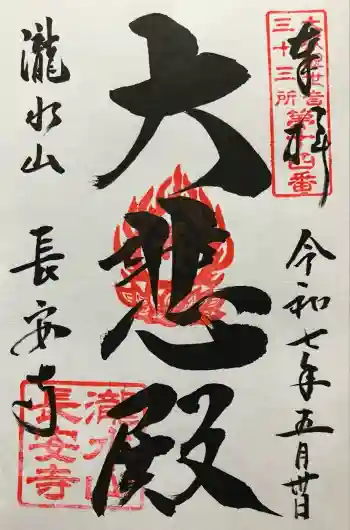 奉拝
三十三所
第十四番
令和七年五月廿日
大悲殿
瀧水山
長安寺
瀧水山
長安寺